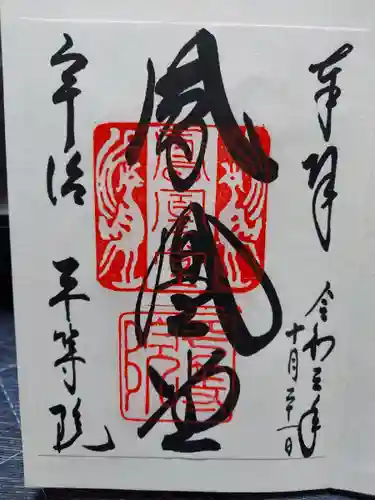 奉拝
令和三年
十月三十一日
鳳凰堂
宇治 平等院